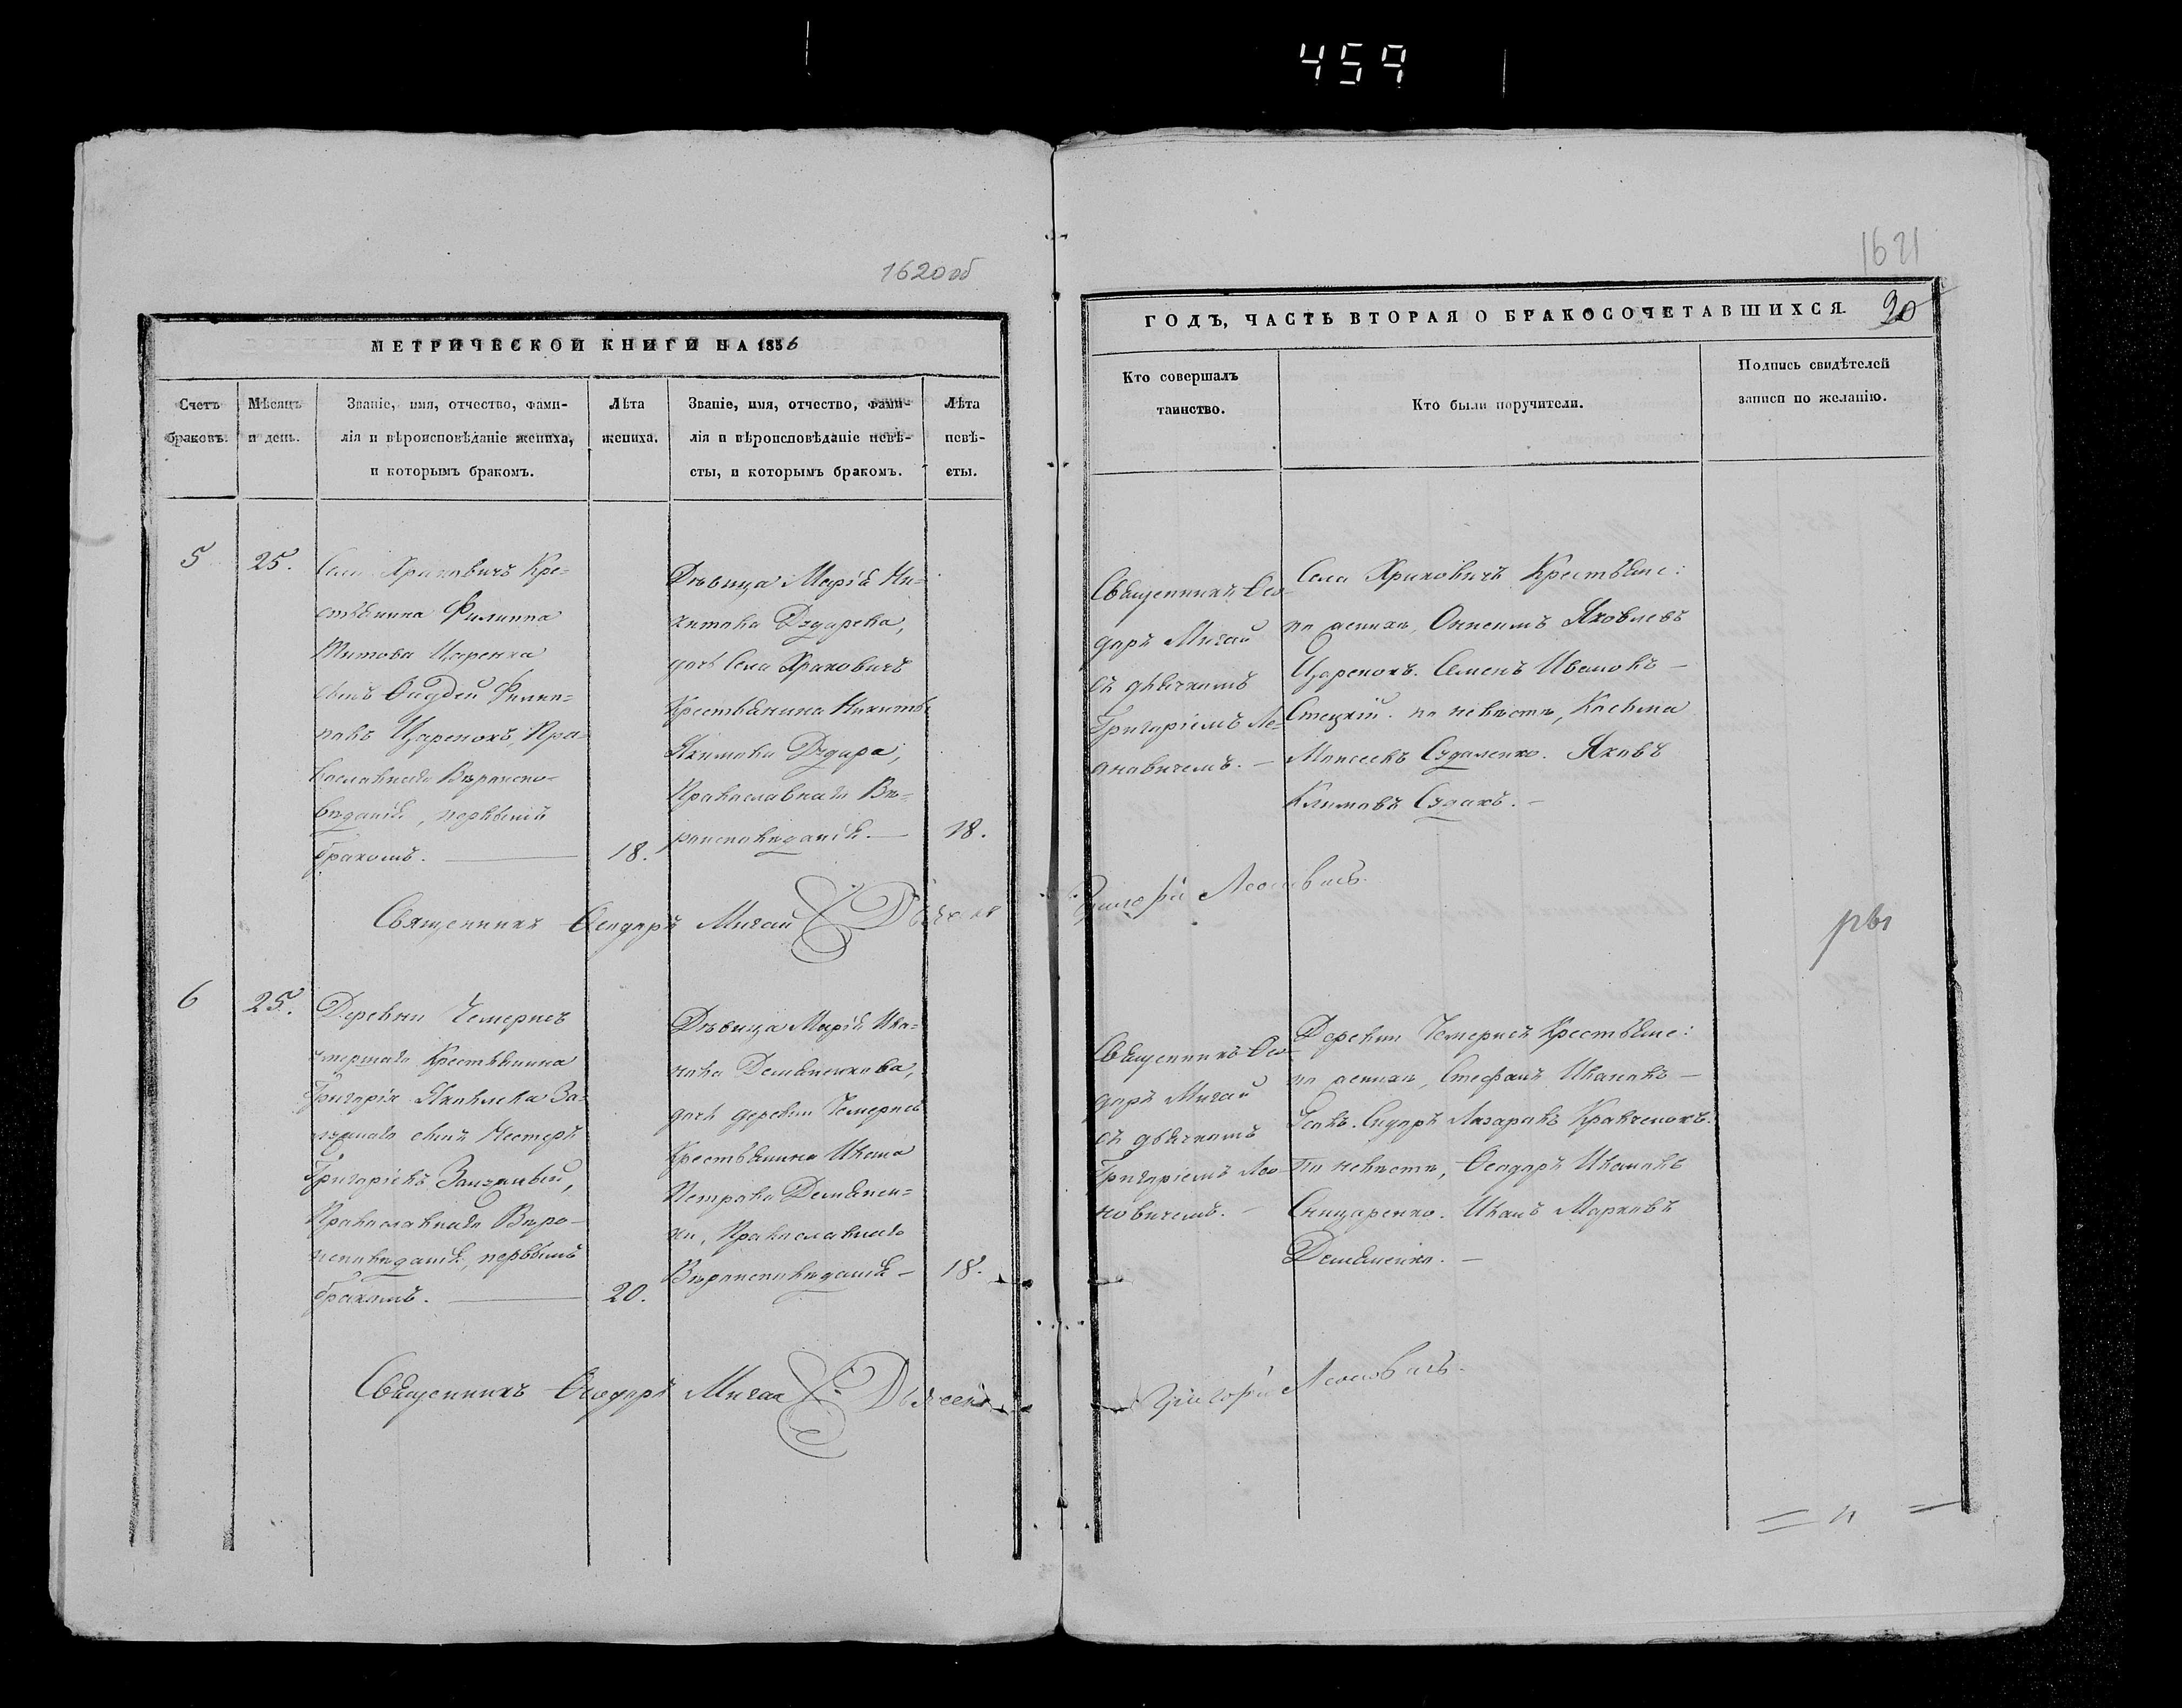 459
1620 об
МЕТРИЧЕСКОЙ КНИГИ НА 1856
Счетъ браковъ.
Мѣсяцъ и день.
Званіе, имя, отчество, фами-
лія и вѣроисповѣданіе жениха,
и которымъ бракомъ.
Лѣта жениха.
Званіе, имя, отчество, фами-
лія и вѣроисповѣданіе невѣ-
сты, и которымъ бракомъ.
Лѣта невѣ-
сты.
5
25.
Села Кре-
стьянина Филиппа
Титова Царенка
сынъ Филип-
повъ Царенокъ, Пра-
вославнаго Вѣроиспо-
вѣданія, первымъ
бракомъ.
18.
Дѣвица Марія Ни-
китова
дочь Села
Крестьянина Никиты
Якимова
Православнаго Вѣ-
роисповѣданія.
18.
Священникъ Ѳеодоръ Мигай Дьячекъ
6
25.
Деревни Чемерисъ
умершаго Крестьянина
Григорія Яковлева За-
сынъ Нестеръ
Григоріевъ
Православнаго Вѣро-
исповѣданія, первымъ
бракомъ.
20.
Дѣвица Марія Ива-
нова Демьяненкова,
дочь деревни Чемерисъ
Крестьянина Ивана
Петрова Демьянен-
ки, Православнаго
Вѣроисповѣданія
18.
Священникъ Ѳеодоръ Мигай Дьячекъ
1621
ГОДЪ, ЧАСТЬ ВТОРАЯ О БРАКОСОЧЕТАВШИХСЯ.
20
Кто совершалъ
таинство.
Кто были поручители.
Подпись свидѣтелей
записи по желанію.
Священникъ Ѳео-
доръ Мигай
съ дьячкомъ
Григоріемъ Ле-
оновичемъ.
Села Крестьяне:
по женихѣ, Онисимъ Яковлевъ
Царенокъ. Семенъ Ивановъ
Стецкій. по невѣстѣ, Косьма
Моисеевъ Яковъ
Климовъ
Григорій Леоновичъ.
Священникъ Ѳео-
доръ Мигай
съ дьячкомъ
Григоріемъ Лео-
новичемъ.
Деревни Чемерисъ Крестьяне:
по женихѣ, Стефанъ Ивановъ
Сидоръ Лазаревъ Кравченокъ.
По невѣстѣ, Ѳеодоръ Ивановъ
Сницаренко. Иванъ Марковъ
Демьяненко.
Григорій Леоновичъ.